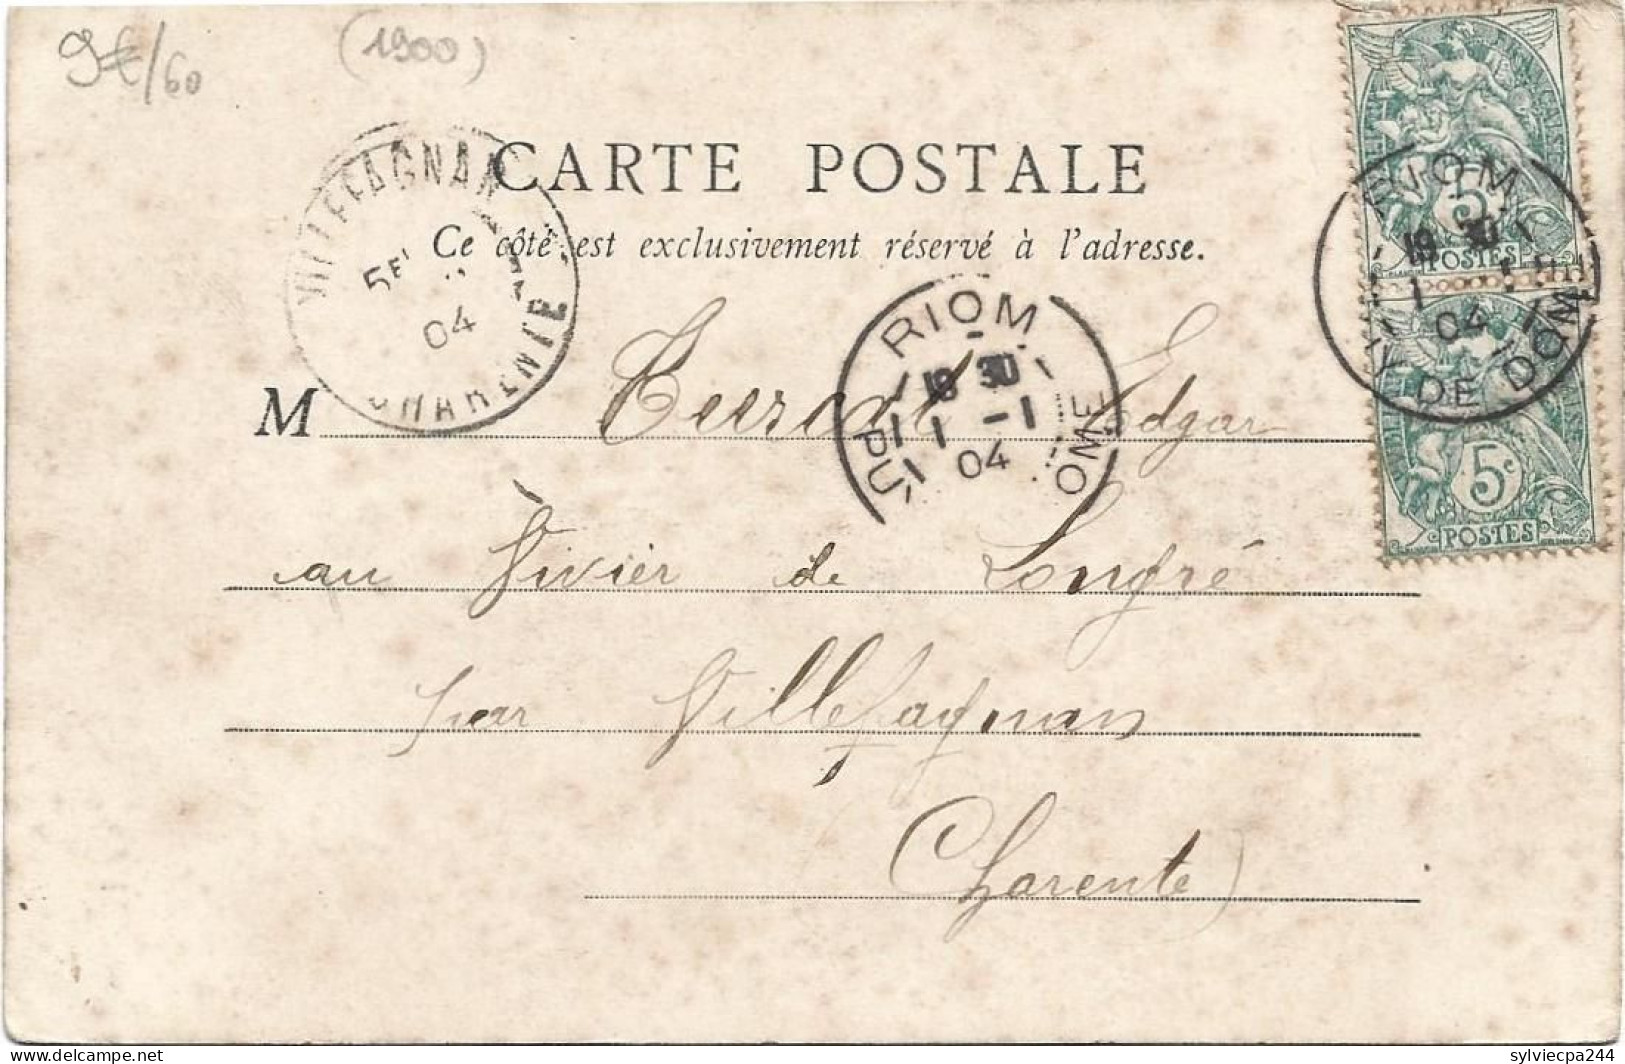 9€/60
(1900)
CARTE POSTALE
Ce côté est exclusivement réservé à l'adresse.
VILLEFAGNAN
04
CHARENTE
RIOM
18 30
1 -1
04
PUY
DOME
RIOM
18 30
1 -1
04
PUY DE DOME
5
POSTES
5c
POSTES
M Edgar
au Vivièr de Longré
par Villefagnan
(Charente)
sylviecpa244